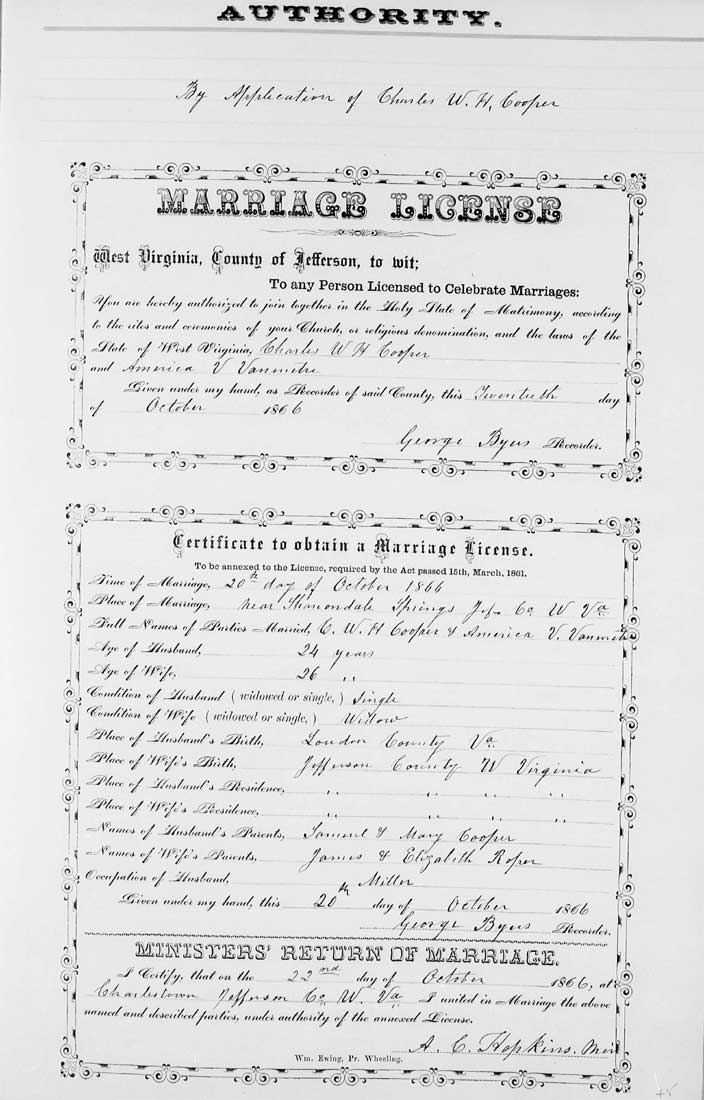 AUTHORITY.
By Application of Charles W. H. Cooper
MARRIAGE LICENSE
West Virginia, County of Jefferson, to wit;
To any Person Licensed to Celebrate Marriages:
You are hereby authorized to join together in the Holy State of Matrimony, according
to the rites and ceremonies of your Church, or religious denomination, and the laws of the
State of West Virginia, Charles W H Cooper
and America V Vanmetre
Given under my hand, as Recorder of said County, this Twentieth day
of October 1866
George Byers Recorder.
Certificate to obtain a Marriage License.
To be annexed to the License, required by the Act passed 15th, March, 1861.
Time of Marriage, 20th day of October 1866
Place of Marriage, near Shanondale Springs Jef. Co. W Va
Full Names of Parties Married, C. W. H Cooper & America V. Vanmetre
Age of Husband, 24 years
Age of Wife, 26 "
Condition of Husband (widowed or single,) Single
Condition of Wife (widowed or single,) Widow
Place of Husband's Birth, Loudon County Va
Place of Wife's Birth, Jefferson County W Virginia
Place of Husband's Residence, " " " "
Place of Wife's Residence, " " " "
Names of Husband's Parents, Samuel & Mary Cooper
Names of Wife's Parents, James & Elizabeth Roper
Occupation of Husband, Miller
Given under my hand, this 20th day of October 1866
George Byers Recorder.
MINISTERS' RETURN OF MARRIAGE.
I Certify, that on the 22nd day of October 1866, at
Charlestown Jefferson Co. W. Va I united in Marriage the above
named and described parties, under authority of the annexed License.
A. C. Hopkins. Min
Wm. Ewing, Pr. Wheeling.